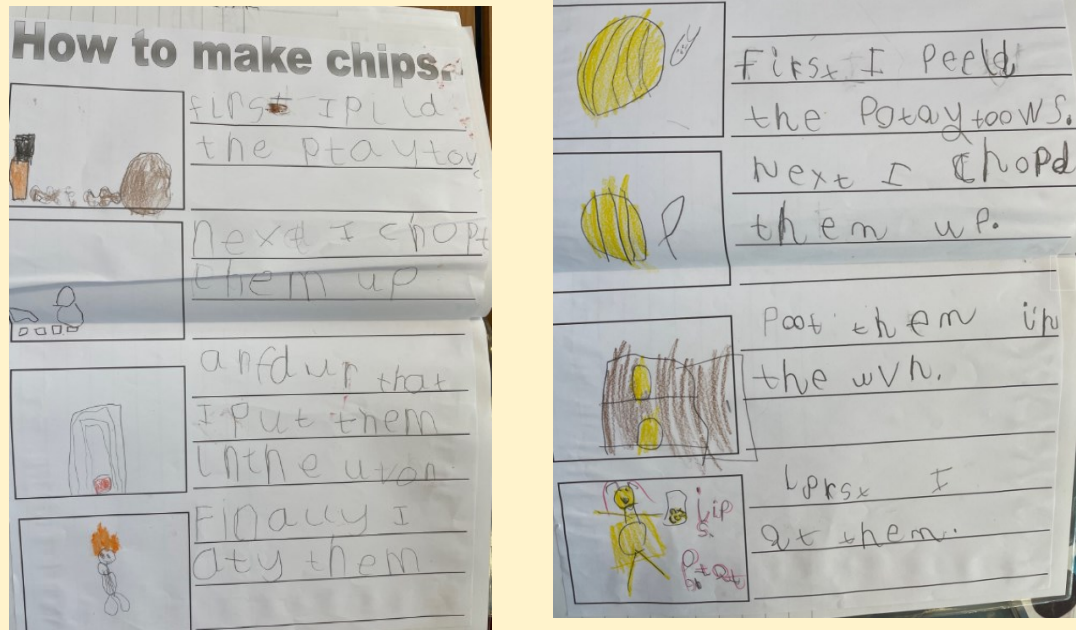 How to make chips.
first I pi ld
the ptaytow
next I chopt
them up
anfdur that
I put them
inthe uvon
Finally I
aty them
First I peeld
the Potaytoows.
Next I chopd
them up.
Poot them in
the uvn.
I
at them.